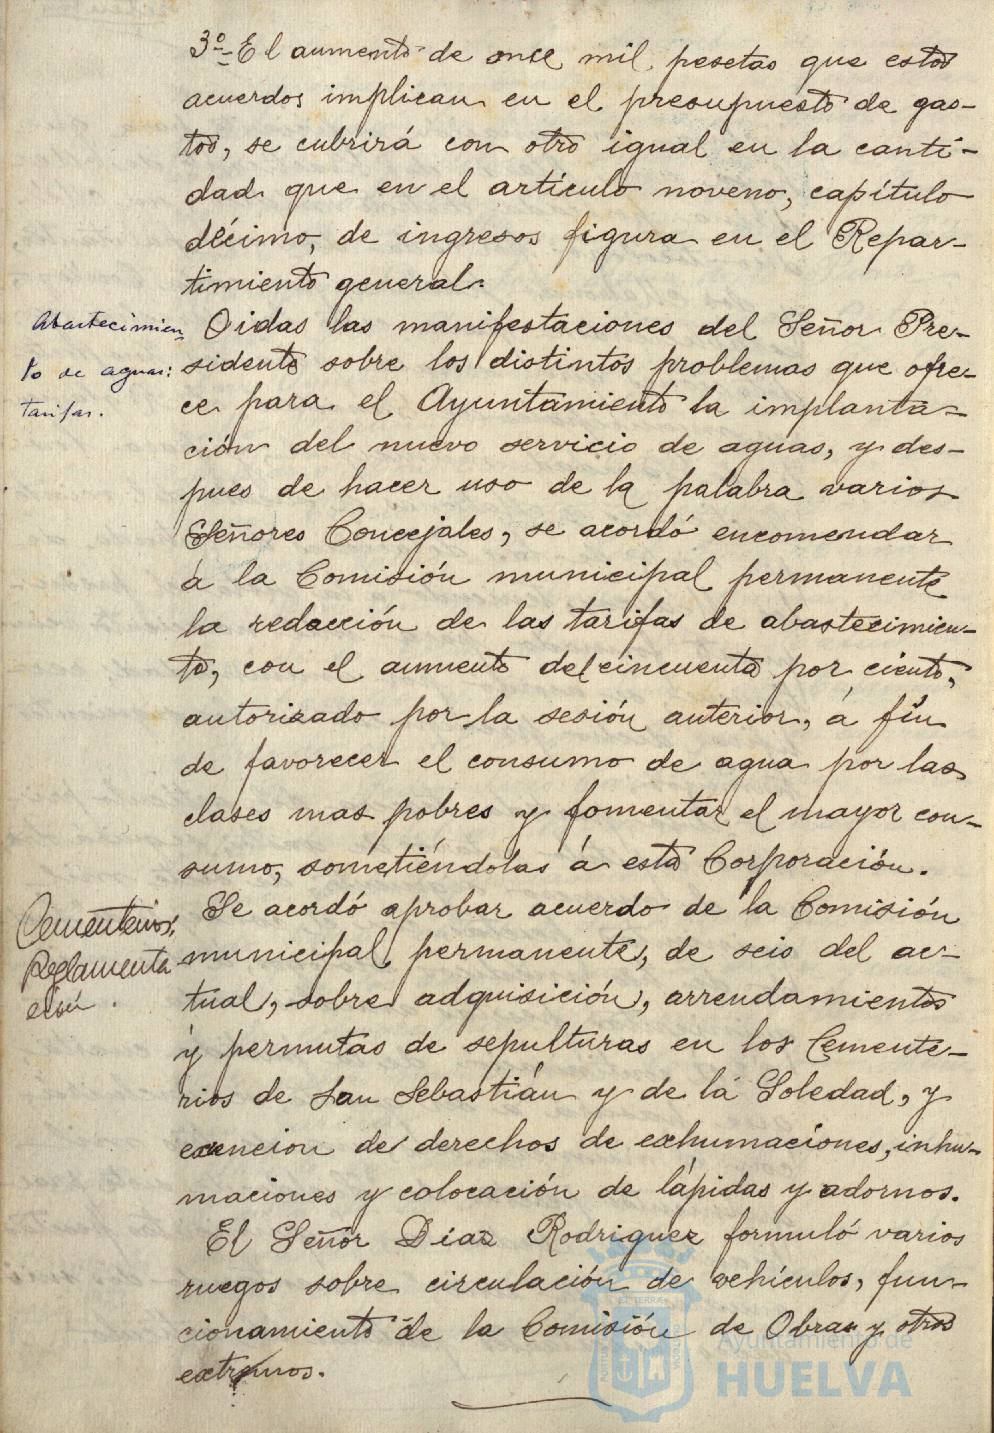 3º- El aumento de once mil pesetas que estos
acuerdos implican en el presupuesto de gas-
tos, se cubrirá con otro igual en la canti-
dad que en el artículo noveno, capítulo
décimo, de ingresos figura en el Repar-
timiento general.
Abastecimien
to de aguas:
tarifas.
Oidas las manifestaciones del Señor Pre-
sidente sobre los distintos problemas que ofre-
ce para el Ayuntamiento la implanta-
ción del nuevo servicio de aguas, y des-
pues de hacer uso de la palabra varios
Señores Concejales, se acordó encomendar
á la Comisión municipal permanente
la redacción de las tarifas de abastecimien-
to, con el aumento del cincuenta por ciento,
autorizado por la sesión anterior, á fin
de favorecer el consumo de agua por las
clases mas pobres y fomentar el mayor con-
sumo, sometiéndolas á esta Corporación.
Cementerios:
Reglamenta
ción.
Se acordó aprobar acuerdo de la Comisión
municipal permanente, de seis del ac-
tual, sobre adquisición, arrendamientos
y permutas de sepulturas en los Cemente-
rios de San Sebastián y de la Soledad, y
exencion de derechos de exhumaciones, inhu-
maciones y colocación de lápidas y adornos.
El Señor Díaz Rodriguez formuló varios
ruegos sobre circulación de vehículos, fun-
cionamiento de la Comisión de Obras y otros
extremos.
Ayuntamiento de
HUELVA